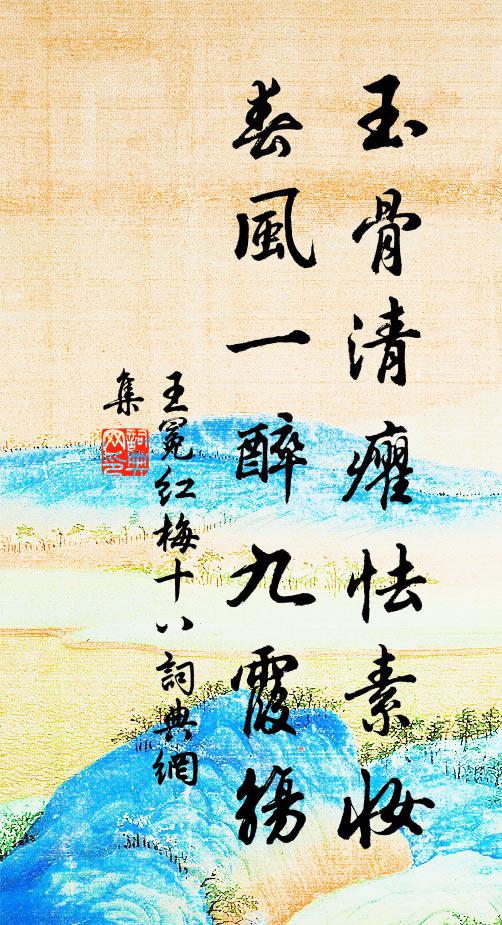 玉骨清癯怯素妝
春風一醉九霞觴
王冕紅梅十八詞典網
集